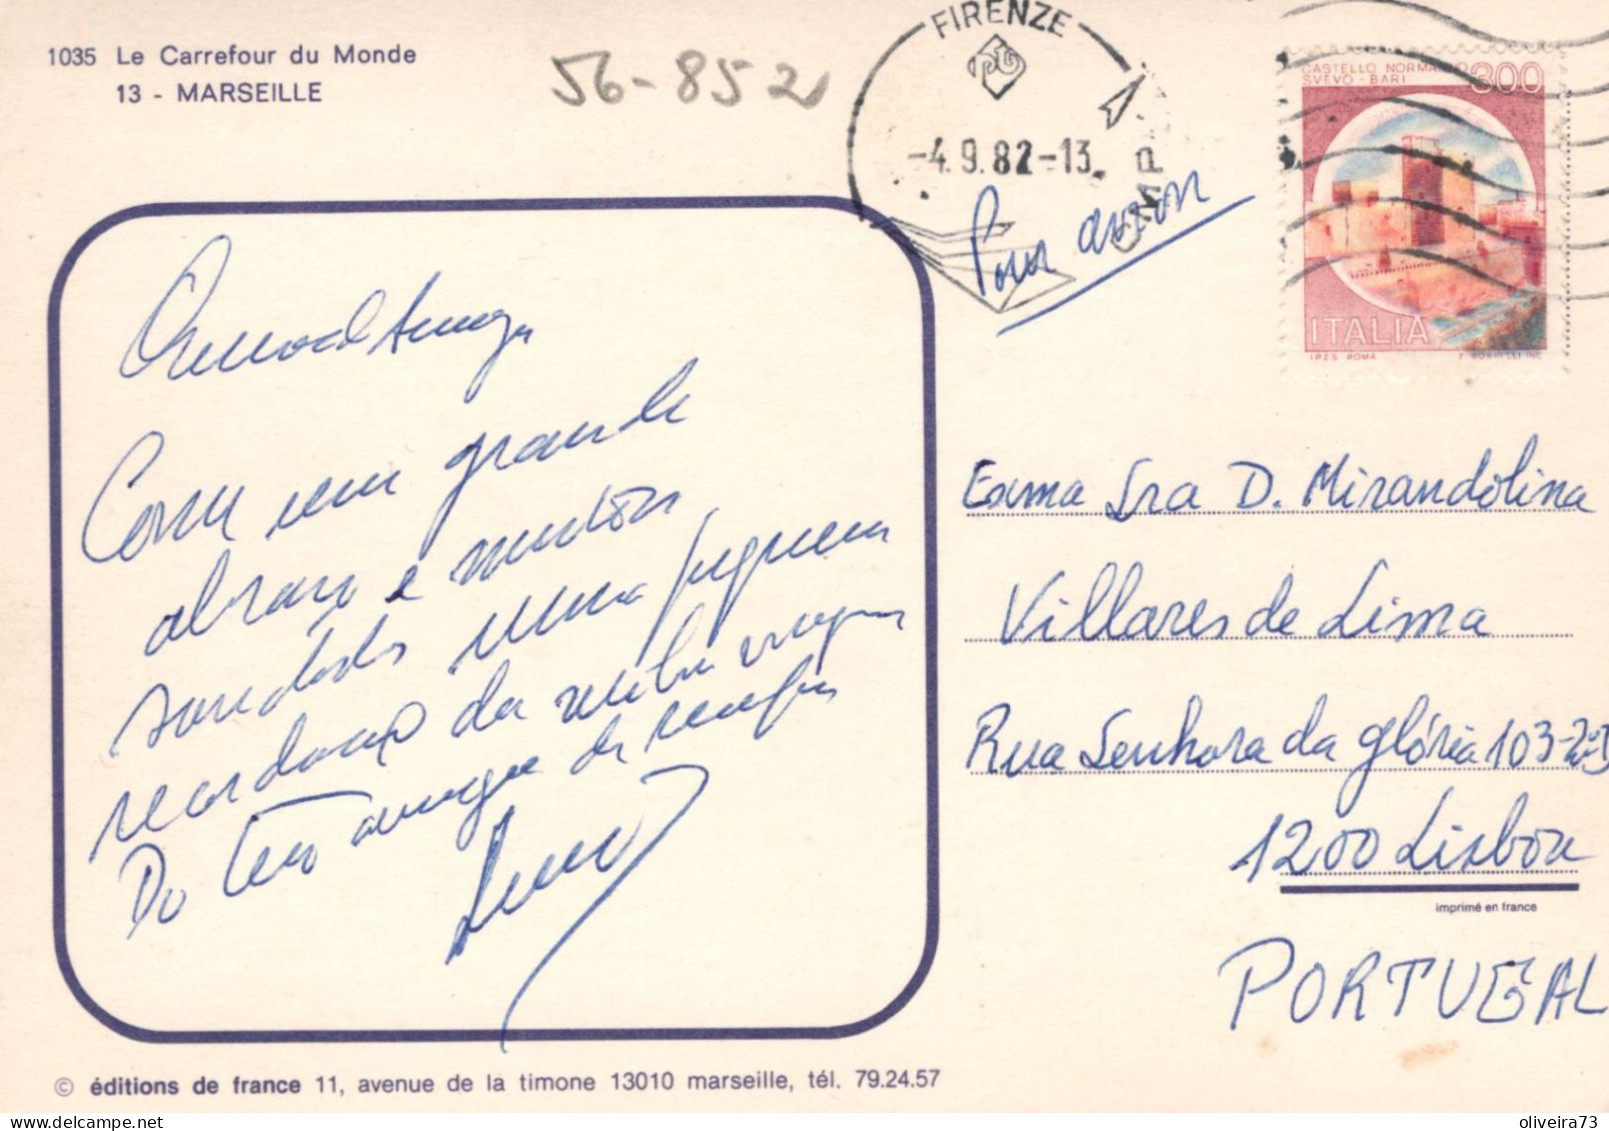 1035 Le Carrefour du Monde
13 - MARSEILLE
56-852
FIRENZE
-4.9.82-13
CMP
CASTELLO NORMANNO
SVEVO - BARI
300
ITALIA
I.P.Z.S. ROMA
Par avion
Com um grande
abraço e muitas
saudades uma pequena
recordação da minha viagem
Do teu amigo de sempre
Exma Sra D. Mirandolina
Villares de Lima
Rua Senhora da glória 103-2º
1200 Lisboa
imprimé en france
PORTUGAL
© éditions de france 11, avenue de la timone 13010 marseille, tél. 79.24.57
oliveira73